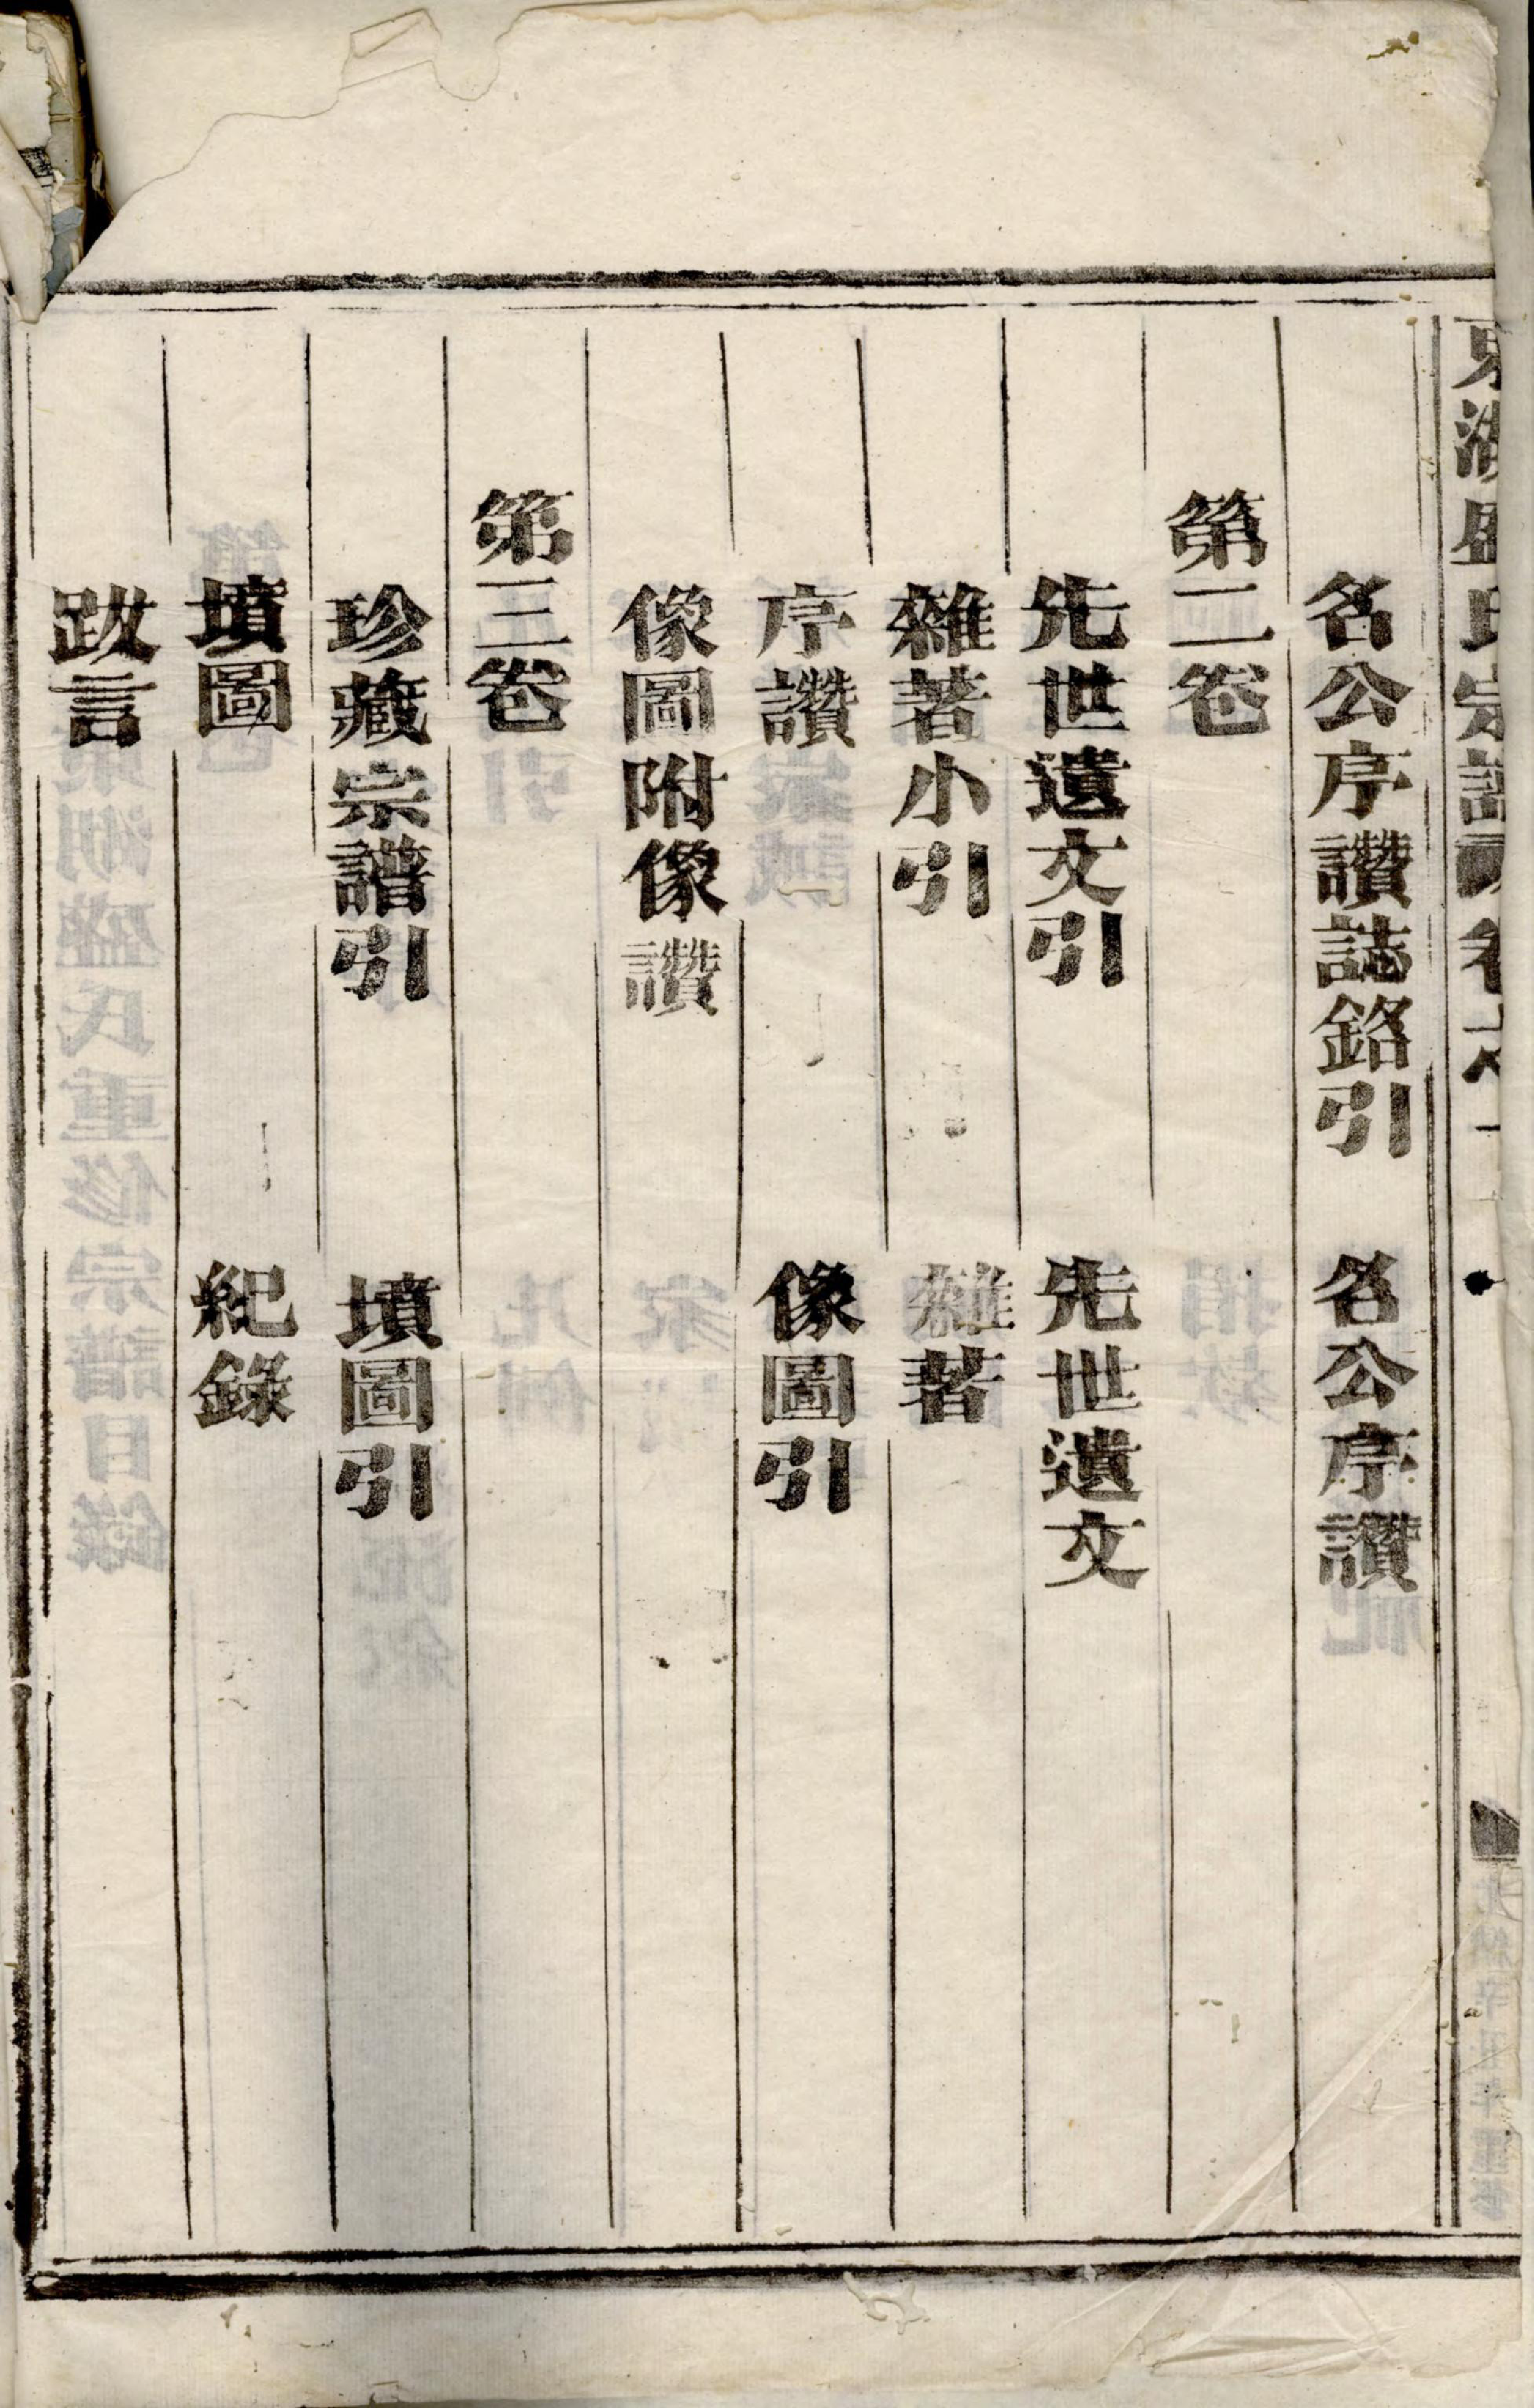 東湖盛氏宗譜 卷之一
名公序讚誌銘引 名公序讚
第二卷
先世遺文引 先世遺文
雜著小引 雜著
序讚 像圖引
像圖附像讚
第三卷
珍藏宗譜引 墳圖引
墳圖 紀錄
跋言